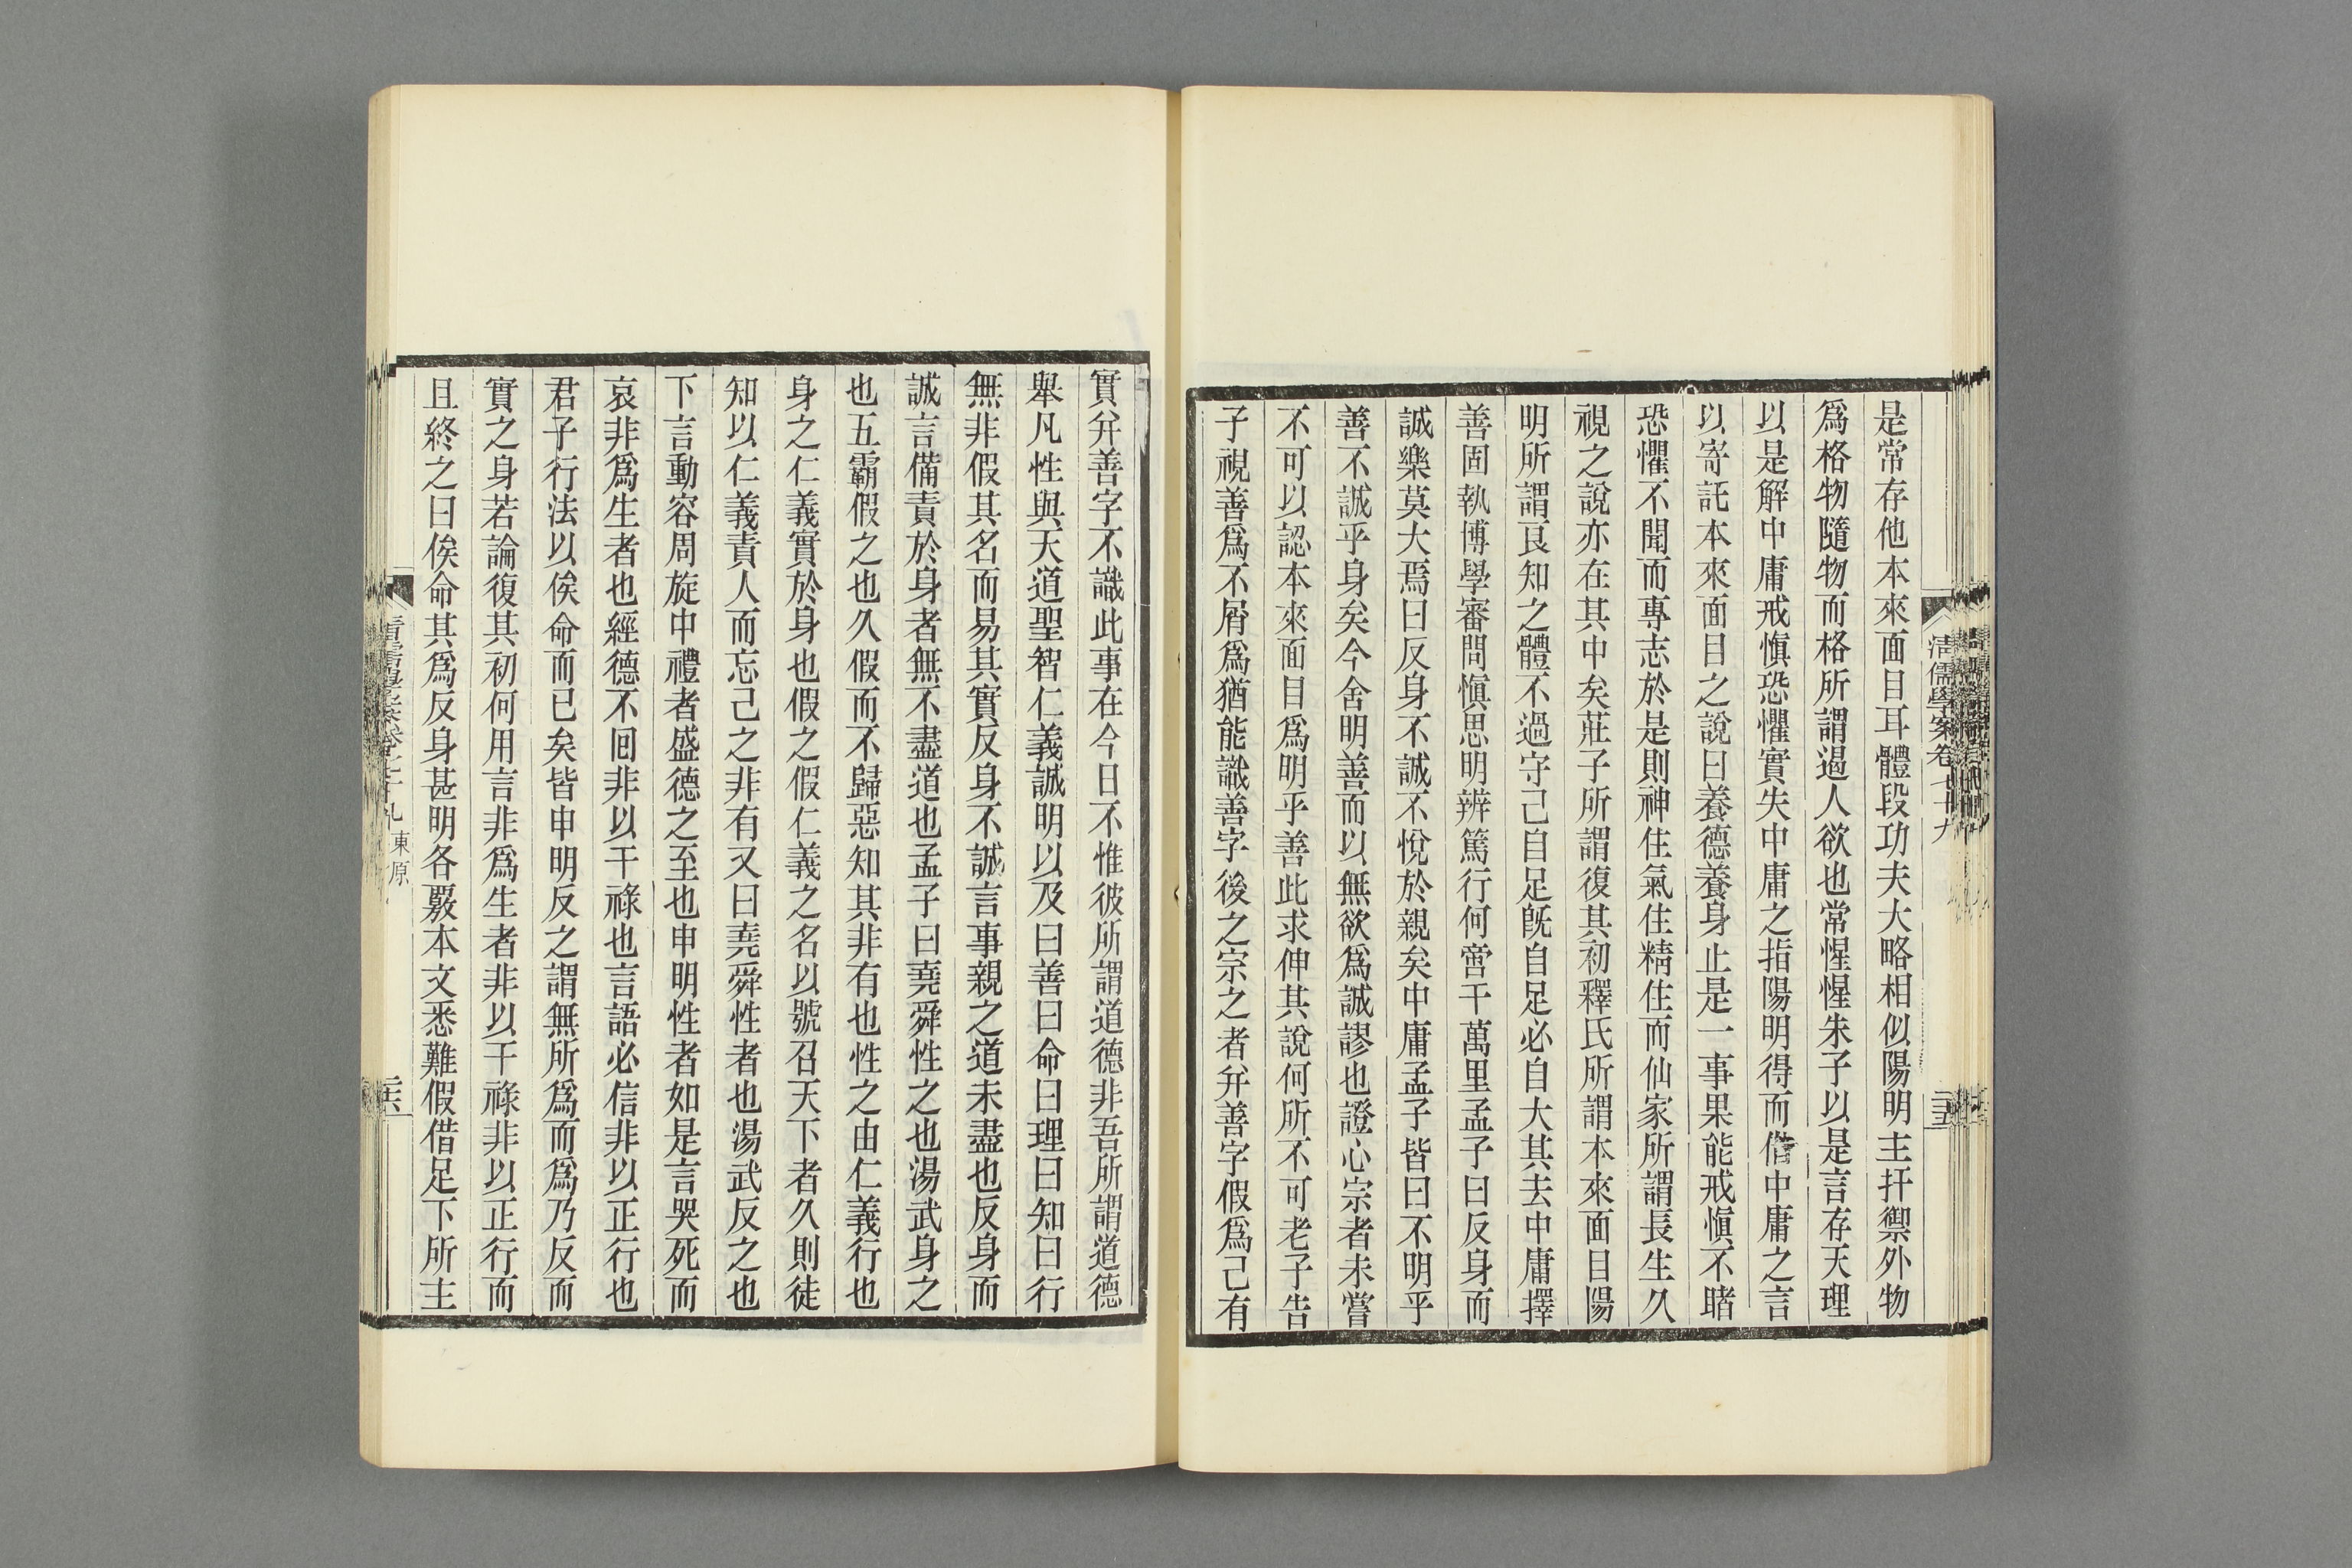 清儒學案卷七十九
二十五
是常存他本來面目耳體段功夫大略相似陽明主扞禦外物
爲格物隨物而格所謂遏人欲也常惺惺朱子以是言存天理
以是解中庸戒愼恐懼實失中庸之指陽明得而借中庸之言
以寄託本來面目之說曰養德養身止是一事果能戒愼不睹
恐懼不聞而專志於是則神住氣住精住而仙家所謂長生久
視之說亦在其中矣莊子所謂復其初釋氏所謂本來面目陽
明所謂良知之體不過守己自足旣自足必自大其去中庸擇
善固執博學審問愼思明辨篤行何啻千萬里孟子曰反身而
誠樂莫大焉曰反身不誠不悅於親矣中庸孟子皆曰不明乎
善不誠乎身矣今舍明善而以無欲爲誠謬也證心宗者未嘗
不可以認本來面目爲明乎善此求伸其說何所不可老子告
子視善爲不屑爲猶能識善字後之宗之者幷善字假爲己有
實幷善字不識此事在今日不惟彼所謂道德非吾所謂道德
舉凡性與天道聖智仁義誠明以及曰善曰命曰理曰知曰行
無非假其名而易其實反身不誠言事親之道未盡也反身而
誠言備責於身者無不盡道也孟子曰堯舜性之也湯武身之
也五霸假之也久假而不歸惡知其非有也性之由仁義行也
身之仁義實於身也假之假仁義之名以號召天下者久則徒
知以仁義責人而忘己之非有又曰堯舜性者也湯武反之也
下言動容周旋中禮者盛德之至也申明性者如是言哭死而
哀非爲生者也經德不回非以干祿也言語必信非以正行也
君子行法以俟命而已矣皆申明反之謂無所爲而爲乃反而
實之身若論復其初何用言非爲生者非以干祿非以正行而
且終之曰俟命其爲反身甚明各覈本文悉難假借足下所主
清儒學案卷七十九 東原
二十六